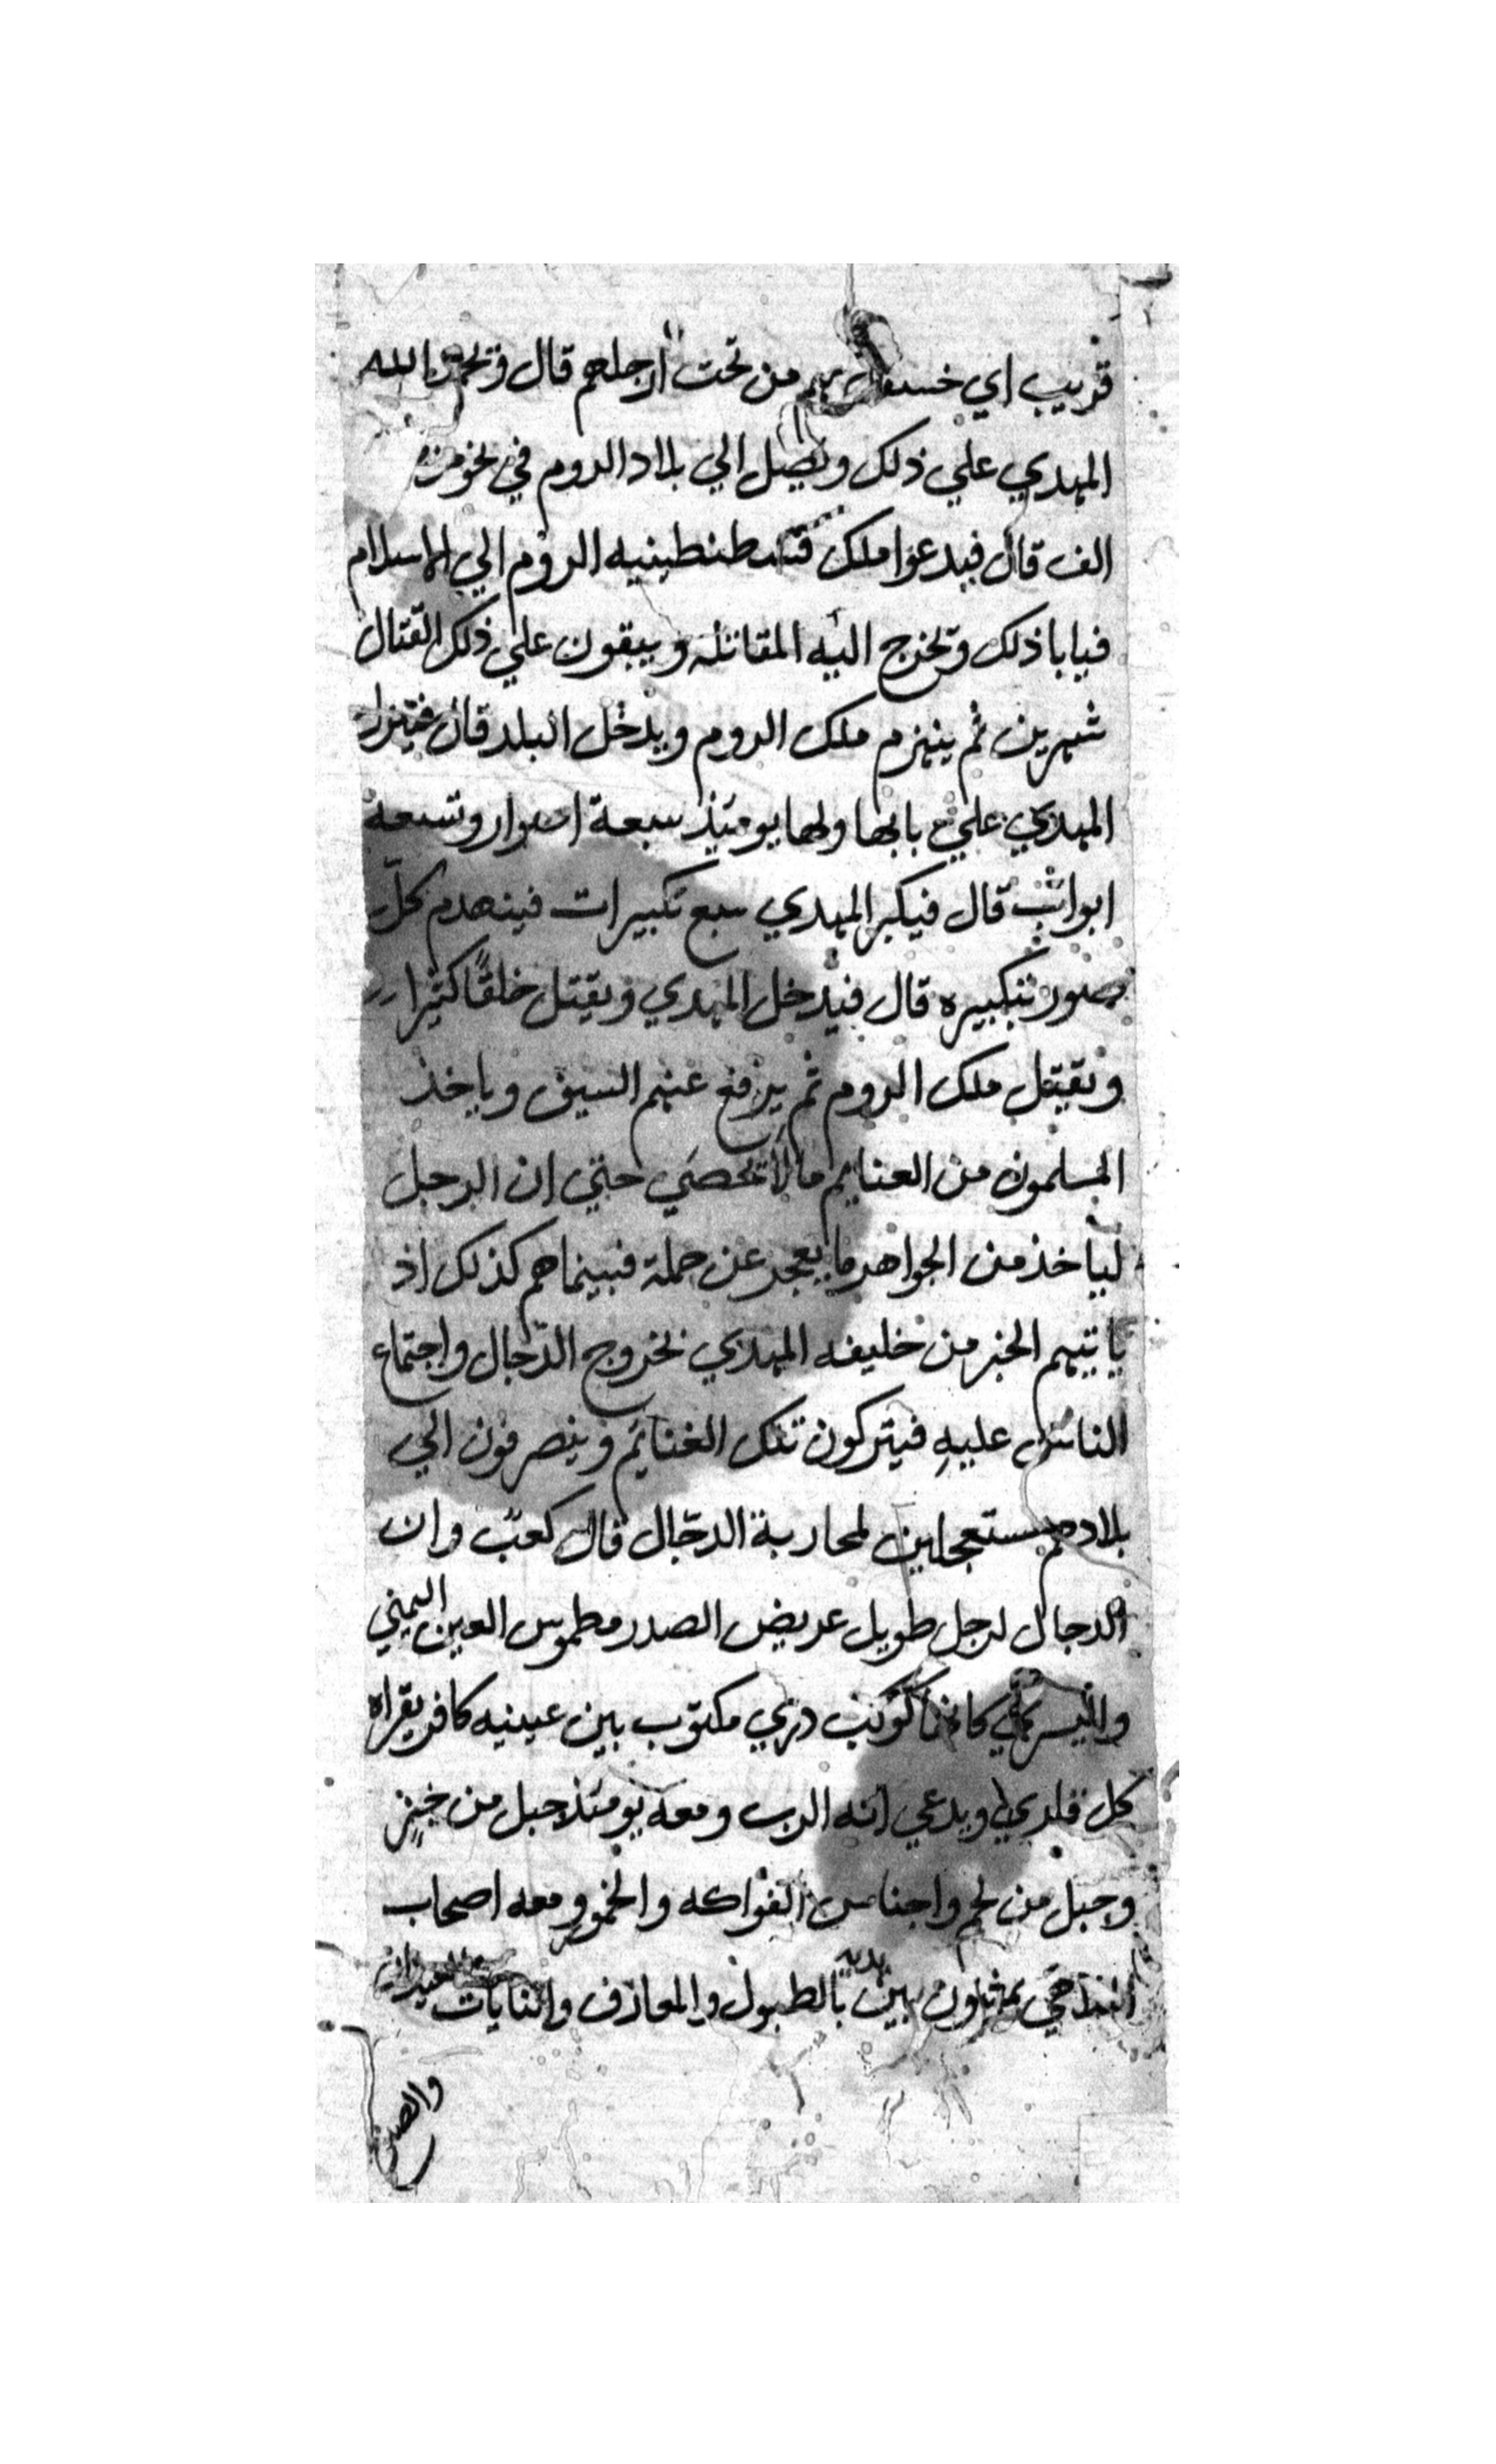 قريب اي خسف بهم من تحت ارجلهم قال ويحمد الله
المهدي علي ذلك ويصل الي بلاد الروم في نحو من
الف قال فيدعوا ملك قسطنطينيه الروم الي الاسلام
فيابا ذلك وتخرج اليه المقاتله ويبقون علي ذلك القتال
شهرين ثم ينهزم ملك الروم ويدخل البلد قال فينزل
المهدي علي بابها ولها يوميذ سبعة اسوار وتسعه
ابواب قال فيكبر المهدي سبع تكبيرات فينهدم كل
صور بتكبيره قال فيدخل المهدي ويقتل خلقًا كثيرا
ويقتل ملك الروم ثم يرفع عنهم السيف وياخذ
المسلمون من الغنايم ما لا تحصي حتي ان الرجل
لياخذ من الجواهر ما يعجز عن حملة فبينما هم كذلك اذ
ياتيهم الخبر من خليفه المهدي بخروج الدّجال واجتماع
الناس عليهِ فيتركون تلك الغنايم وينصرفون الي
بلادهم مستعجلين لمحاربة الدجّال قال كعب وان
الدجال لرجل طويل عريض الصدر مطموس العين اليمني
واليسري كانها كوكب دري مكتوب بين عينيه كافر يقراه
كل قاري ويدعي انه الرب ومعه يومئذ جبل من خبز
وجبل من لحم واجناس الفواكه والخمور ومعه اصحاب
الملاهي يمشون بين يديه بالطبول والمعازف والنايات والعيدان
والصنج